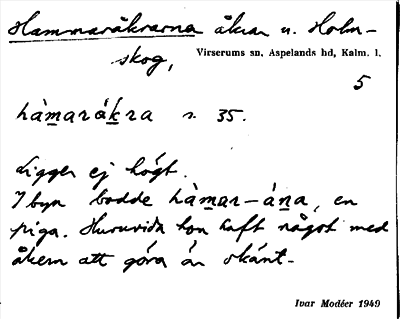 Hammaråkrarna åkrar u. Holm-
skog,
Virserums sn, Aspelands hd, Kalm. l.
5
hàmarákra s. 35.
Ligger ej högt.
I byn bodde hàmar-ána, en
piga. Huruvida hon haft något med
åkern att göra är okänt.
Ivar Modéer 1949